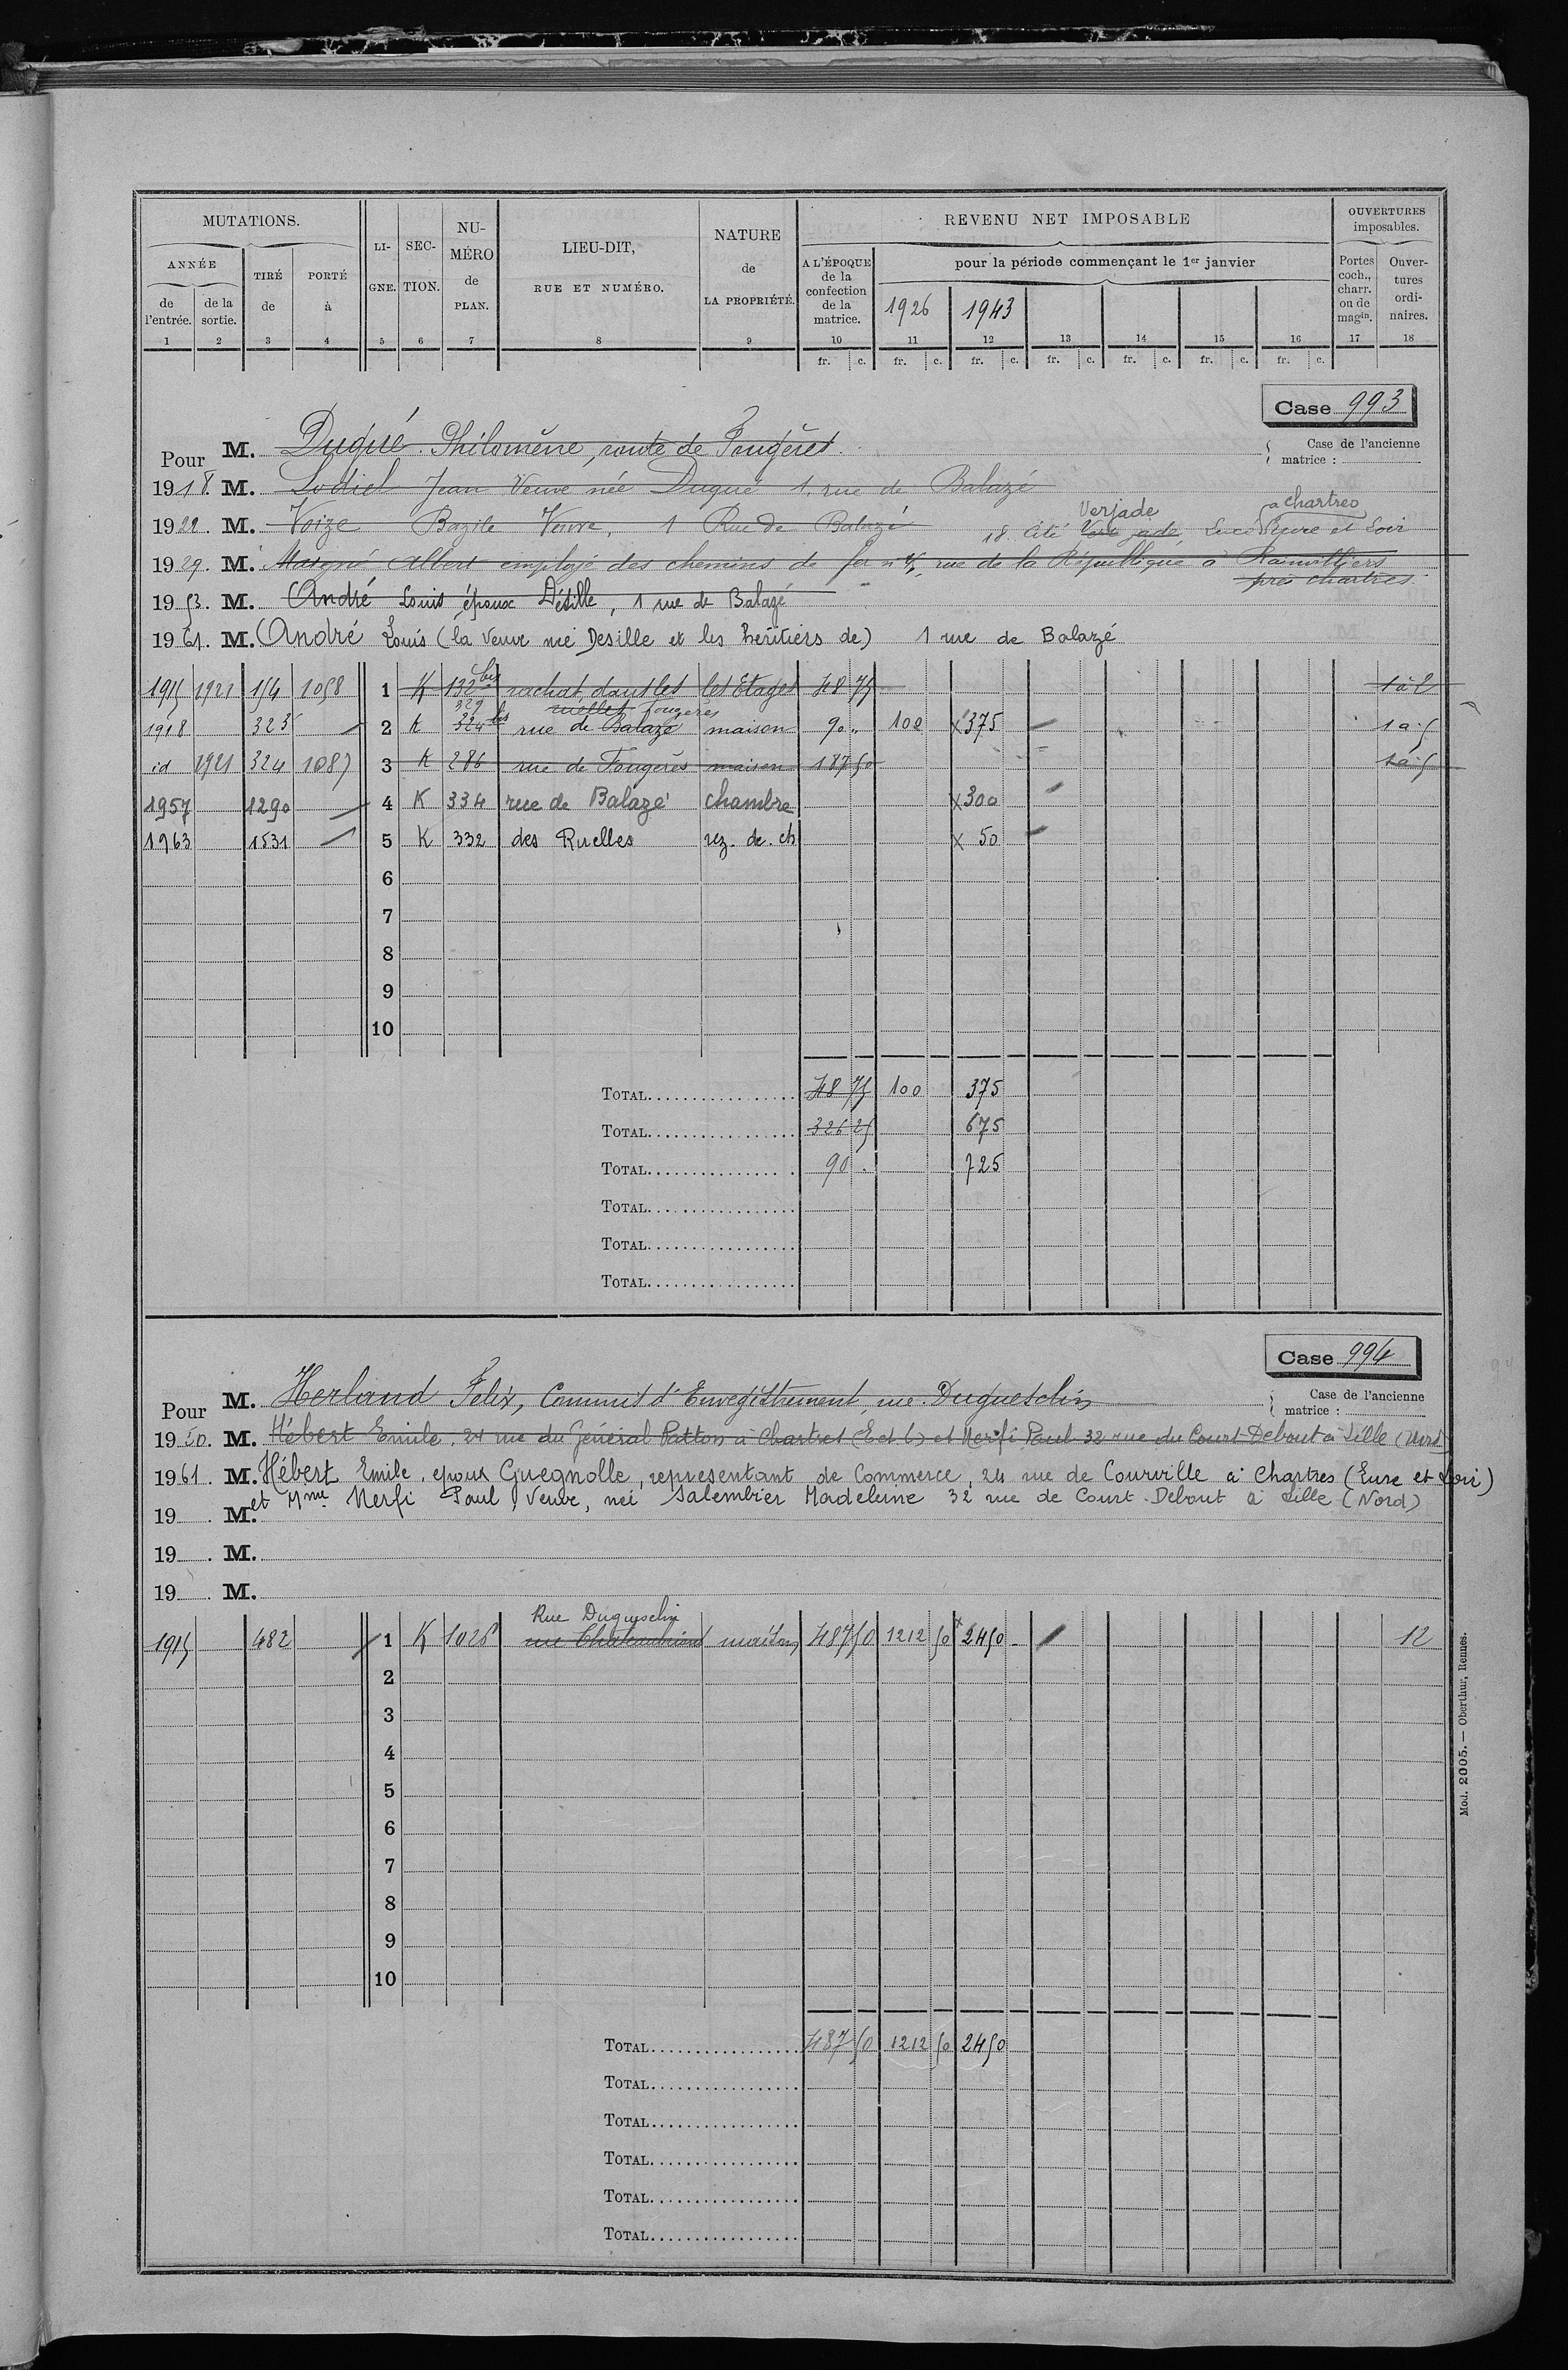 MUTATIONS.
ANNÉE
de l'entrée.
de la sortie.
TIRÉ de
PORTÉ à
LIGNE.
SECTION.
NUMÉRO de PLAN.
LIEU-DIT, RUE ET NUMÉRO.
NATURE de LA PROPRIÉTÉ.
REVENU NET IMPOSABLE
A L'ÉPOQUE de la confection de la matrice.
pour la période commençant le 1er janvier
1926 1943
OUVERTURES imposables.
Portes coch., charr. ou de magin.
Ouvertures ordinaires.
1 2 3 4 5 6 7 8 9 10 11 12 13 14 15 16 17 18
fr. c. fr. c. fr. c. fr. c. fr. c. fr. c. fr. c.
Case 993
Case de l'ancienne matrice :
Pour M. Dugué Philomène, route de Fougères.
1918. M. Lodiel Jean Veuve née Dugué 1, rue de Balazé
1922. M. Voize Bazile Veuve, 1 Rue de Balazé
18 Cité Verjade Lucé Eure et Loir
a chartres
1929. M. Albert employé des chemins de fer rue de la République à
près chartres
1953. M. André Louis époux Désille, 1 rue de Balazé
1961. M. André Louis (la Veuve née Desille et les héritiers de) 1 rue de Balazé
1915 1921 154 1058 1 K 132 bis rachat, dans les ruelles les Etages 48 75 1 à 2
329 fougères
1918 323 2 K 324 bis rue de Balazé maison 90 " 100 x 375 1 à 5
id 1921 324 1087 3 K 286 rue de Fougères maison 187 50 1 à 5
1957 1290 4 K 334 rue de Balazé chambre x 300
1963 1531 5 K 332 des Ruelles rez. de. ch x 50
6
7
8
9
10
TOTAL 48 75 100 375
TOTAL 326 25 675
TOTAL 90 . 725
TOTAL
TOTAL
TOTAL
Case 994
Case de l'ancienne matrice :
Pour M. Herland Felix, Commis d'Enregistrement, rue Duguesclin
1950. M. Hébert Emile, 24 rue du Général Patton à Chartres (E et L) et Nerfi Paul 32 rue du Court Debout à Lille (Nord)
1961. M. Hébert Emile, epoux Guegnolle, representant de Commerce, 24 rue de Courville à Chartres (Eure et Loir)
19 . M. et Mme Nerfi Paul, Veuve, née Salembier Madeleine 32 rue de Court-Debout à Lille (Nord)
19 . M.
19 . M.
Rue Duguesclin
1915 482 1 K 1026 rue Chateaubriand maison 487 50 1212 50 x 2450 12
2
3
4
5
6
7
8
9
10
TOTAL 487 50 1212 50 2450
TOTAL
TOTAL
TOTAL
TOTAL
TOTAL
Mod. 2005. — Oberthur, Rennes.